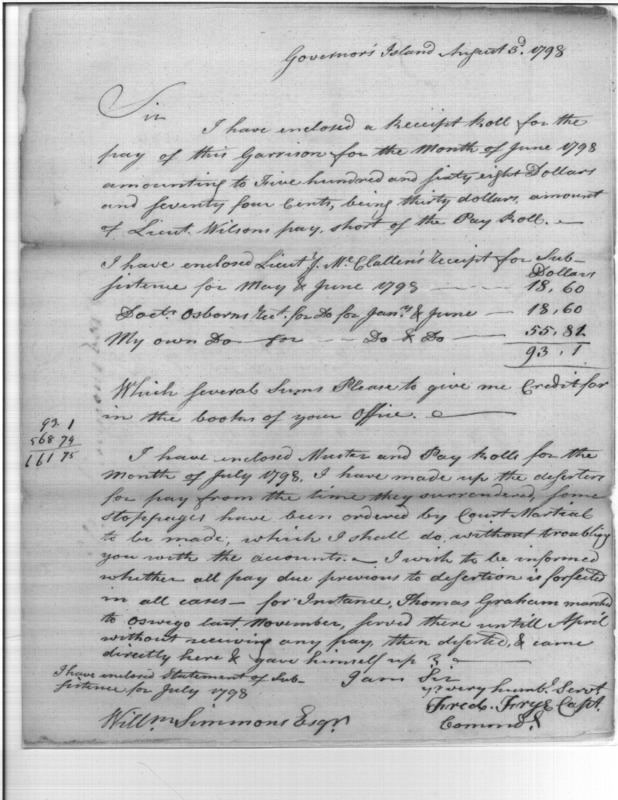 Governor's Island August 3d. 1798
Sir
I have enclosed a Receipt Roll for the
pay of this Garrison for the Month of June 1798
amounting to Five hundred and sixty eight Dollars
and seventy four Cents, being thirty dollars, amount
of Lieut. Wilsons pay, short of the Pay Roll.
I have enclosed Lieut. J. McClallen's Receipt for Sub-
Dollars
sistence for May & June 1798 — 18,60
Doctr. Osborns Rect. for Do for Jany. & June — 18,60
My own Do — for — Do & Do — 55.81
93.1
Which several Sums Please to give me Credit for
in the books of your Office.
93 1
568 74
661 75
I have enclosed Muster and Pay Rolls for the
Month of July 1798. I have made up the deserters
for pay from the time they surrendered, some
stoppages have been ordered by Court Martial
to be made, which I shall do, without troubling
you with the accounts. I wish to be informed
whether all pay due previous to desertion is forfeited
in all cases — for Instance, Thomas Graham marched
to Oswego last November, served there untill April
without receiving any pay, then deserted, & came
directly here & gave himself up ?
I have enclosed Statement of Sub-
sistence for July 1798
I am Sir
yr very humbl. Servt
Fredk. Frye Capt.
Commdg
Willm Simmons Esqr.